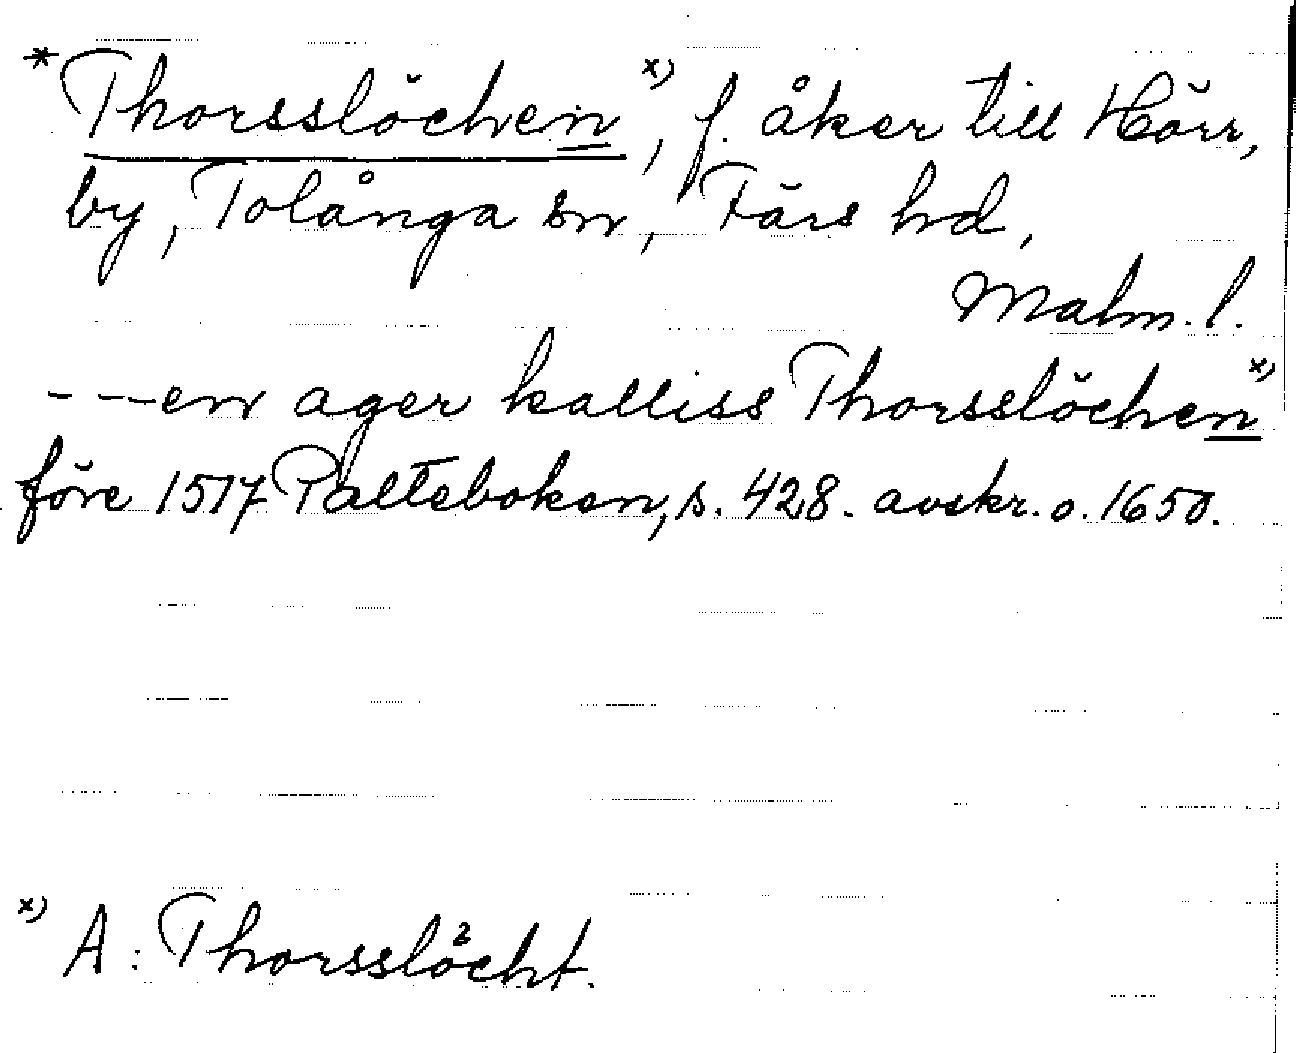 * Thorsslöchen x), f. åker till Hörr,
by, Tolånga sn, Färs hd,
Malm. l.
- --- en ager kalliss Thorsslöchen x)
före 1517 Paltebokon, s. 428. avskr. o. 1650.
x) A: Thorsslöcht.